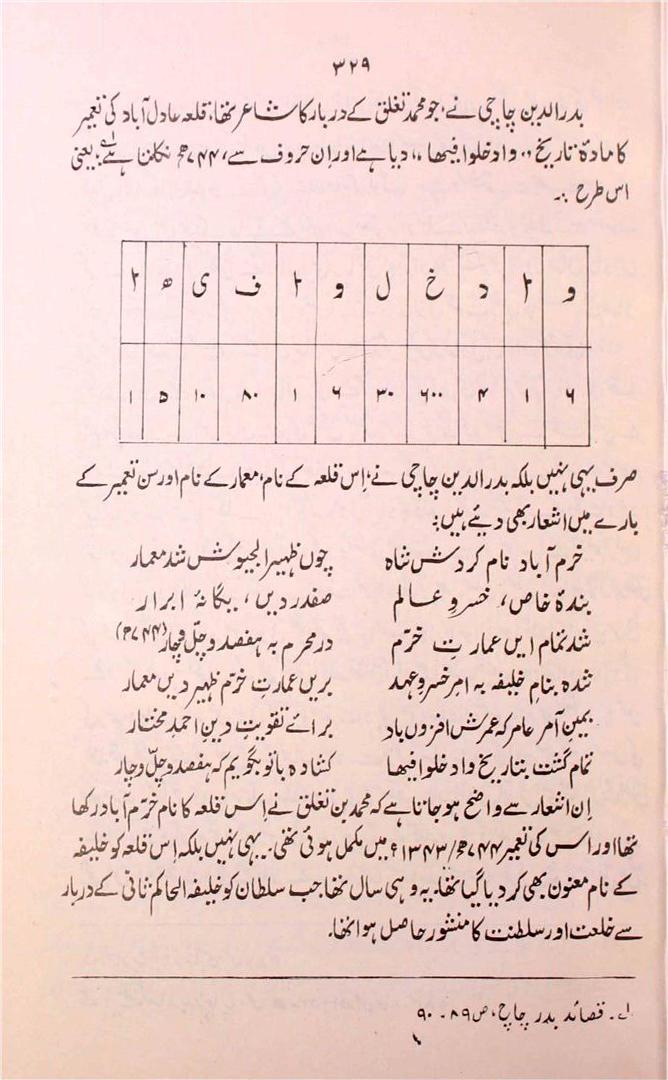 ۳۲۹
بدرالدین چاچی نے، جو محمد تغلق کے دربار کا شاعر تھا، قلعہ عادل آباد کی تعمیر
کا مادۂ تاریخ ،، وادخلوا فیھا ،، دیا ہے اور اِن حروف سے، ۷۴۴ھ نکلتا ہے؎۱؛ یعنی
اس طرح :۔
و ا د خ ل و ا ف ی ھ ا
۶ ۱ ۴ ۶۰۰ ۳۰ ۶ ۱ ۸۰ ۱۰ ۵ ۱
صرف یہی نہیں بلکہ بدرالدین چاچی نے، اِس قلعہ کے نام، معمار کے نام اور سن تعمیر کے
بارے میں اشعار بھی دیئے ہیں:
خرم آباد نام کردش شاہ چوں ظہیر الجیوش شد معمار
بندۂ خاص، خسروِ عالم صفدر دیں، یگانۂ ابرار
شد تمام ایں عمارتِ خرّم در محرم بہ ہفصد و چلّ و چار (۷۴۴ھ)
شدہ بنامِ خلیفہ بہ امرِ خسروِ عہد بریں عمارتِ خرّم ظہیر دیں معمار
یمینِ آمر عامر کہ عمرش افزوں باد برائے تقویتِ دینِ احمدِ مختار
تمام گشت بتاریخ وادخلوا فیہا کشادہ باتو بگویم کہ ہفصد و چلّ و چار
اِن اشعار سے واضح ہو جاتا ہے کہ محمد بن تغلق نے اِس قلعہ کا نام خرّم آباد رکھا
تھا اور اس کی تعمیر ۷۴۴ھ/۱۳۴۳ء میں مکمل ہوئی تھی۔ یہی نہیں بلکہ اِس قلعہ کو خلیفہ
کے نام معنون بھی کر دیا گیا تھا۔ یہ وہی سال تھا جب سلطان کو خلیفہ الحاکم ثانی کے دربار
سے خلعت اور سلطنت کا منشور حاصل ہوا تھا۔
؎۱۔ قصائد بدر چاچ، ص ۸۹ ۔ ۹۰